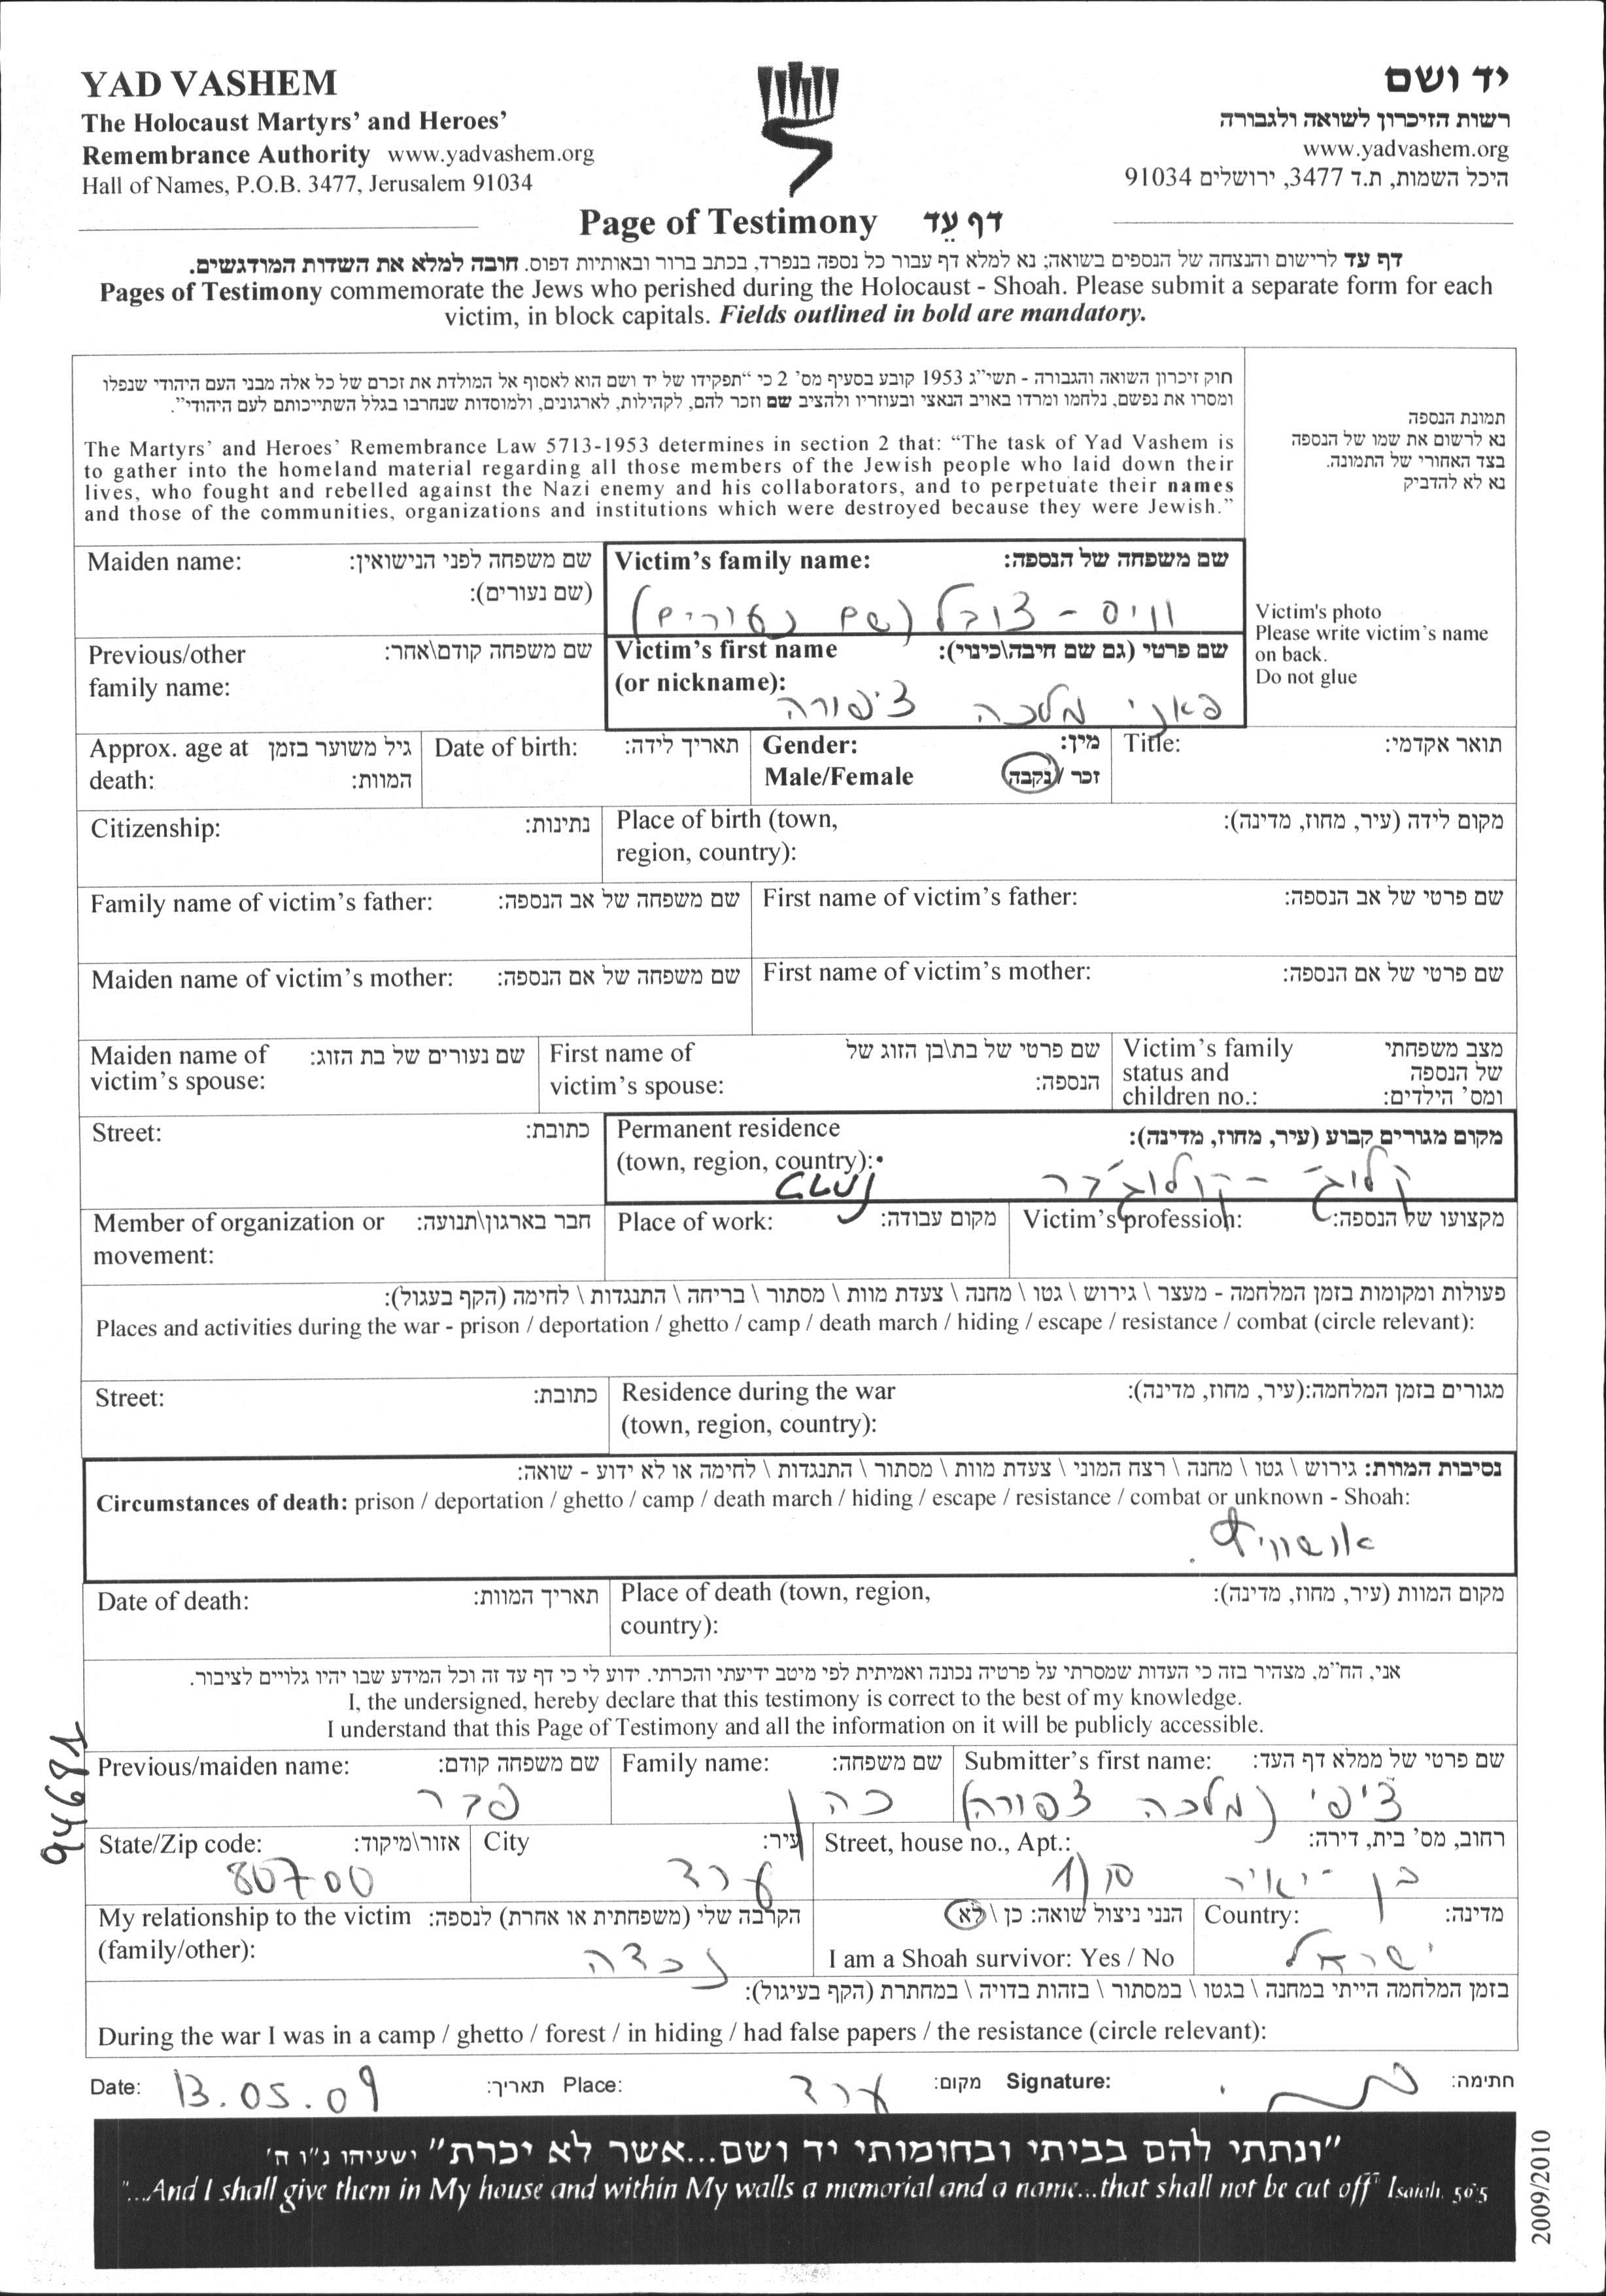 YAD VASHEM
The Holocaust Martyrs' and Heroes'
Remembrance Authority www.yadvashem.org
Hall of Names, P.O.B. 3477, Jerusalem 91034
יד ושם
רשות הזיכרון לשואה ולגבורה
www.yadvashem.org
היכל השמות, ת.ד 3477, ירושלים 91034
Page of Testimony דף עֵד
דף עד לרישום והנצחה של הנספים בשואה; נא למלא דף עבור כל נספה בנפרד, בכתב ברור ובאותיות דפוס. חובה למלא את השדות המודגשים.
Pages of Testimony commemorate the Jews who perished during the Holocaust - Shoah. Please submit a separate form for each
victim, in block capitals. Fields outlined in bold are mandatory.
חוק זיכרון השואה והגבורה - תשי"ג 1953 קובע בסעיף מס' 2 כי "תפקידו של יד ושם הוא לאסוף אל המולדת את זכרם של כל אלה מבני העם היהודי שנפלו
ומסרו את נפשם, נלחמו ומרדו באויב הנאצי ובעוזריו ולהציב שם וזכר להם, לקהילות, לארגונים, ולמוסדות שנחרבו בגלל השתייכותם לעם היהודי".
The Martyrs' and Heroes' Remembrance Law 5713-1953 determines in section 2 that: "The task of Yad Vashem is
to gather into the homeland material regarding all those members of the Jewish people who laid down their
lives, who fought and rebelled against the Nazi enemy and his collaborators, and to perpetuate their names
and those of the communities, organizations and institutions which were destroyed because they were Jewish."
תמונת הנספה
נא לרשום את שמו של הנספה
בצד האחורי של התמונה.
נא לא להדביק
Victim's photo
Please write victim's name
on back.
Do not glue
Maiden name: שם משפחה לפני הנישואין:
(שם נעורים):
Victim's family name: שם משפחה של הנספה:
וויס - צובל (שם נעורים)
Previous/other שם משפחה קודם\אחר:
family name:
Victim's first name שם פרטי (גם שם חיבה\כינוי):
(or nickname):
פאני מלכה ציפורה
Approx. age at גיל משוער בזמן
death: המוות:
Date of birth: תאריך לידה:
Gender: מין:
Male/Female זכר / נקבה
Title: תואר אקדמי:
Citizenship: נתינות:
Place of birth (town, מקום לידה (עיר, מחוז, מדינה):
region, country):
Family name of victim's father: שם משפחה של אב הנספה:
First name of victim's father: שם פרטי של אב הנספה:
Maiden name of victim's mother: שם משפחה של אם הנספה:
First name of victim's mother: שם פרטי של אם הנספה:
Maiden name of שם נעורים של בת הזוג:
victim's spouse:
First name of שם פרטי של בת\בן הזוג של
victim's spouse: הנספה:
Victim's family מצב משפחתי
status and של הנספה
children no.: ומס' הילדים:
Street: כתובת:
Permanent residence מקום מגורים קבוע (עיר, מחוז, מדינה):
(town, region, country):
CLUJ קלוג' - קולוג'דר
Member of organization or חבר בארגון\תנועה:
movement:
Place of work: מקום עבודה:
Victim's profession: מקצועו של הנספה:
פעולות ומקומות בזמן המלחמה - מעצר \ גירוש \ גטו \ מחנה \ צעדת מוות \ מסתור \ בריחה \ התנגדות \ לחימה (הקף בעגול):
Places and activities during the war - prison / deportation / ghetto / camp / death march / hiding / escape / resistance / combat (circle relevant):
Street: כתובת:
Residence during the war מגורים בזמן המלחמה:(עיר, מחוז, מדינה):
(town, region, country):
נסיבות המוות: גירוש \ גטו \ מחנה \ רצח המוני \ צעדת מוות \ מסתור \ התנגדות \ לחימה או לא ידוע - שואה:
Circumstances of death: prison / deportation / ghetto / camp / death march / hiding / escape / resistance / combat or unknown - Shoah:
אושוויץ.
Date of death: תאריך המוות:
Place of death (town, region, מקום המוות (עיר, מחוז, מדינה):
country):
אני, הח"מ, מצהיר בזה כי העדות שמסרתי על פרטיה נכונה ואמיתית לפי מיטב ידיעתי והכרתי. ידוע לי כי דף עד זה וכל המידע שבו יהיו גלויים לציבור.
I, the undersigned, hereby declare that this testimony is correct to the best of my knowledge.
I understand that this Page of Testimony and all the information on it will be publicly accessible.
Previous/maiden name: שם משפחה קודם:
פדר
Family name: שם משפחה:
כהן
Submitter's first name: שם פרטי של ממלא דף העד:
ציפי (מלכה צפורה)
State/Zip code: אזור\מיקוד:
80700
City עיר:
ערד
Street, house no., Apt.: רחוב, מס' בית, דירה:
בן יאיר 10/1
My relationship to the victim הקרבה שלי (משפחתית או אחרת) לנספה:
(family/other):
נכדה
הנני ניצול שואה: כן \ לא
I am a Shoah survivor: Yes / No
Country: מדינה:
ישראל
בזמן המלחמה הייתי במחנה \ בגטו \ במסתור \ בזהות בדויה \ במחתרת (הקף בעיגול):
During the war I was in a camp / ghetto / forest / in hiding / had false papers / the resistance (circle relevant):
Date: 13.05.09 תאריך: Place: ערד מקום: Signature: חתימה:
"ונתתי להם בביתי ובחומותי יד ושם...אשר לא יכרת" ישעיהו נ"ו ה'
"...And I shall give them in My house and within My walls a memorial and a name...that shall not be cut off" Isaiah, 56:5
2009/2010